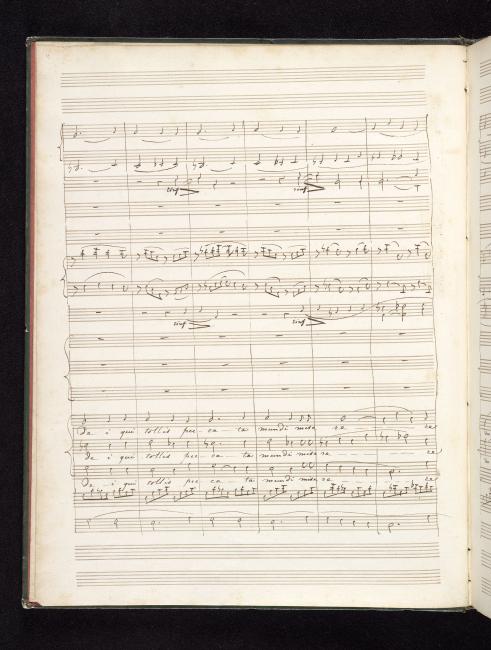 sinf sinf
sinf sinf
De i qui tollis pec ca ta mundi mise re re
de i qui tollis pec ca ta mundi mise re re
De i qui tollis pec ca ta mundi mise re re